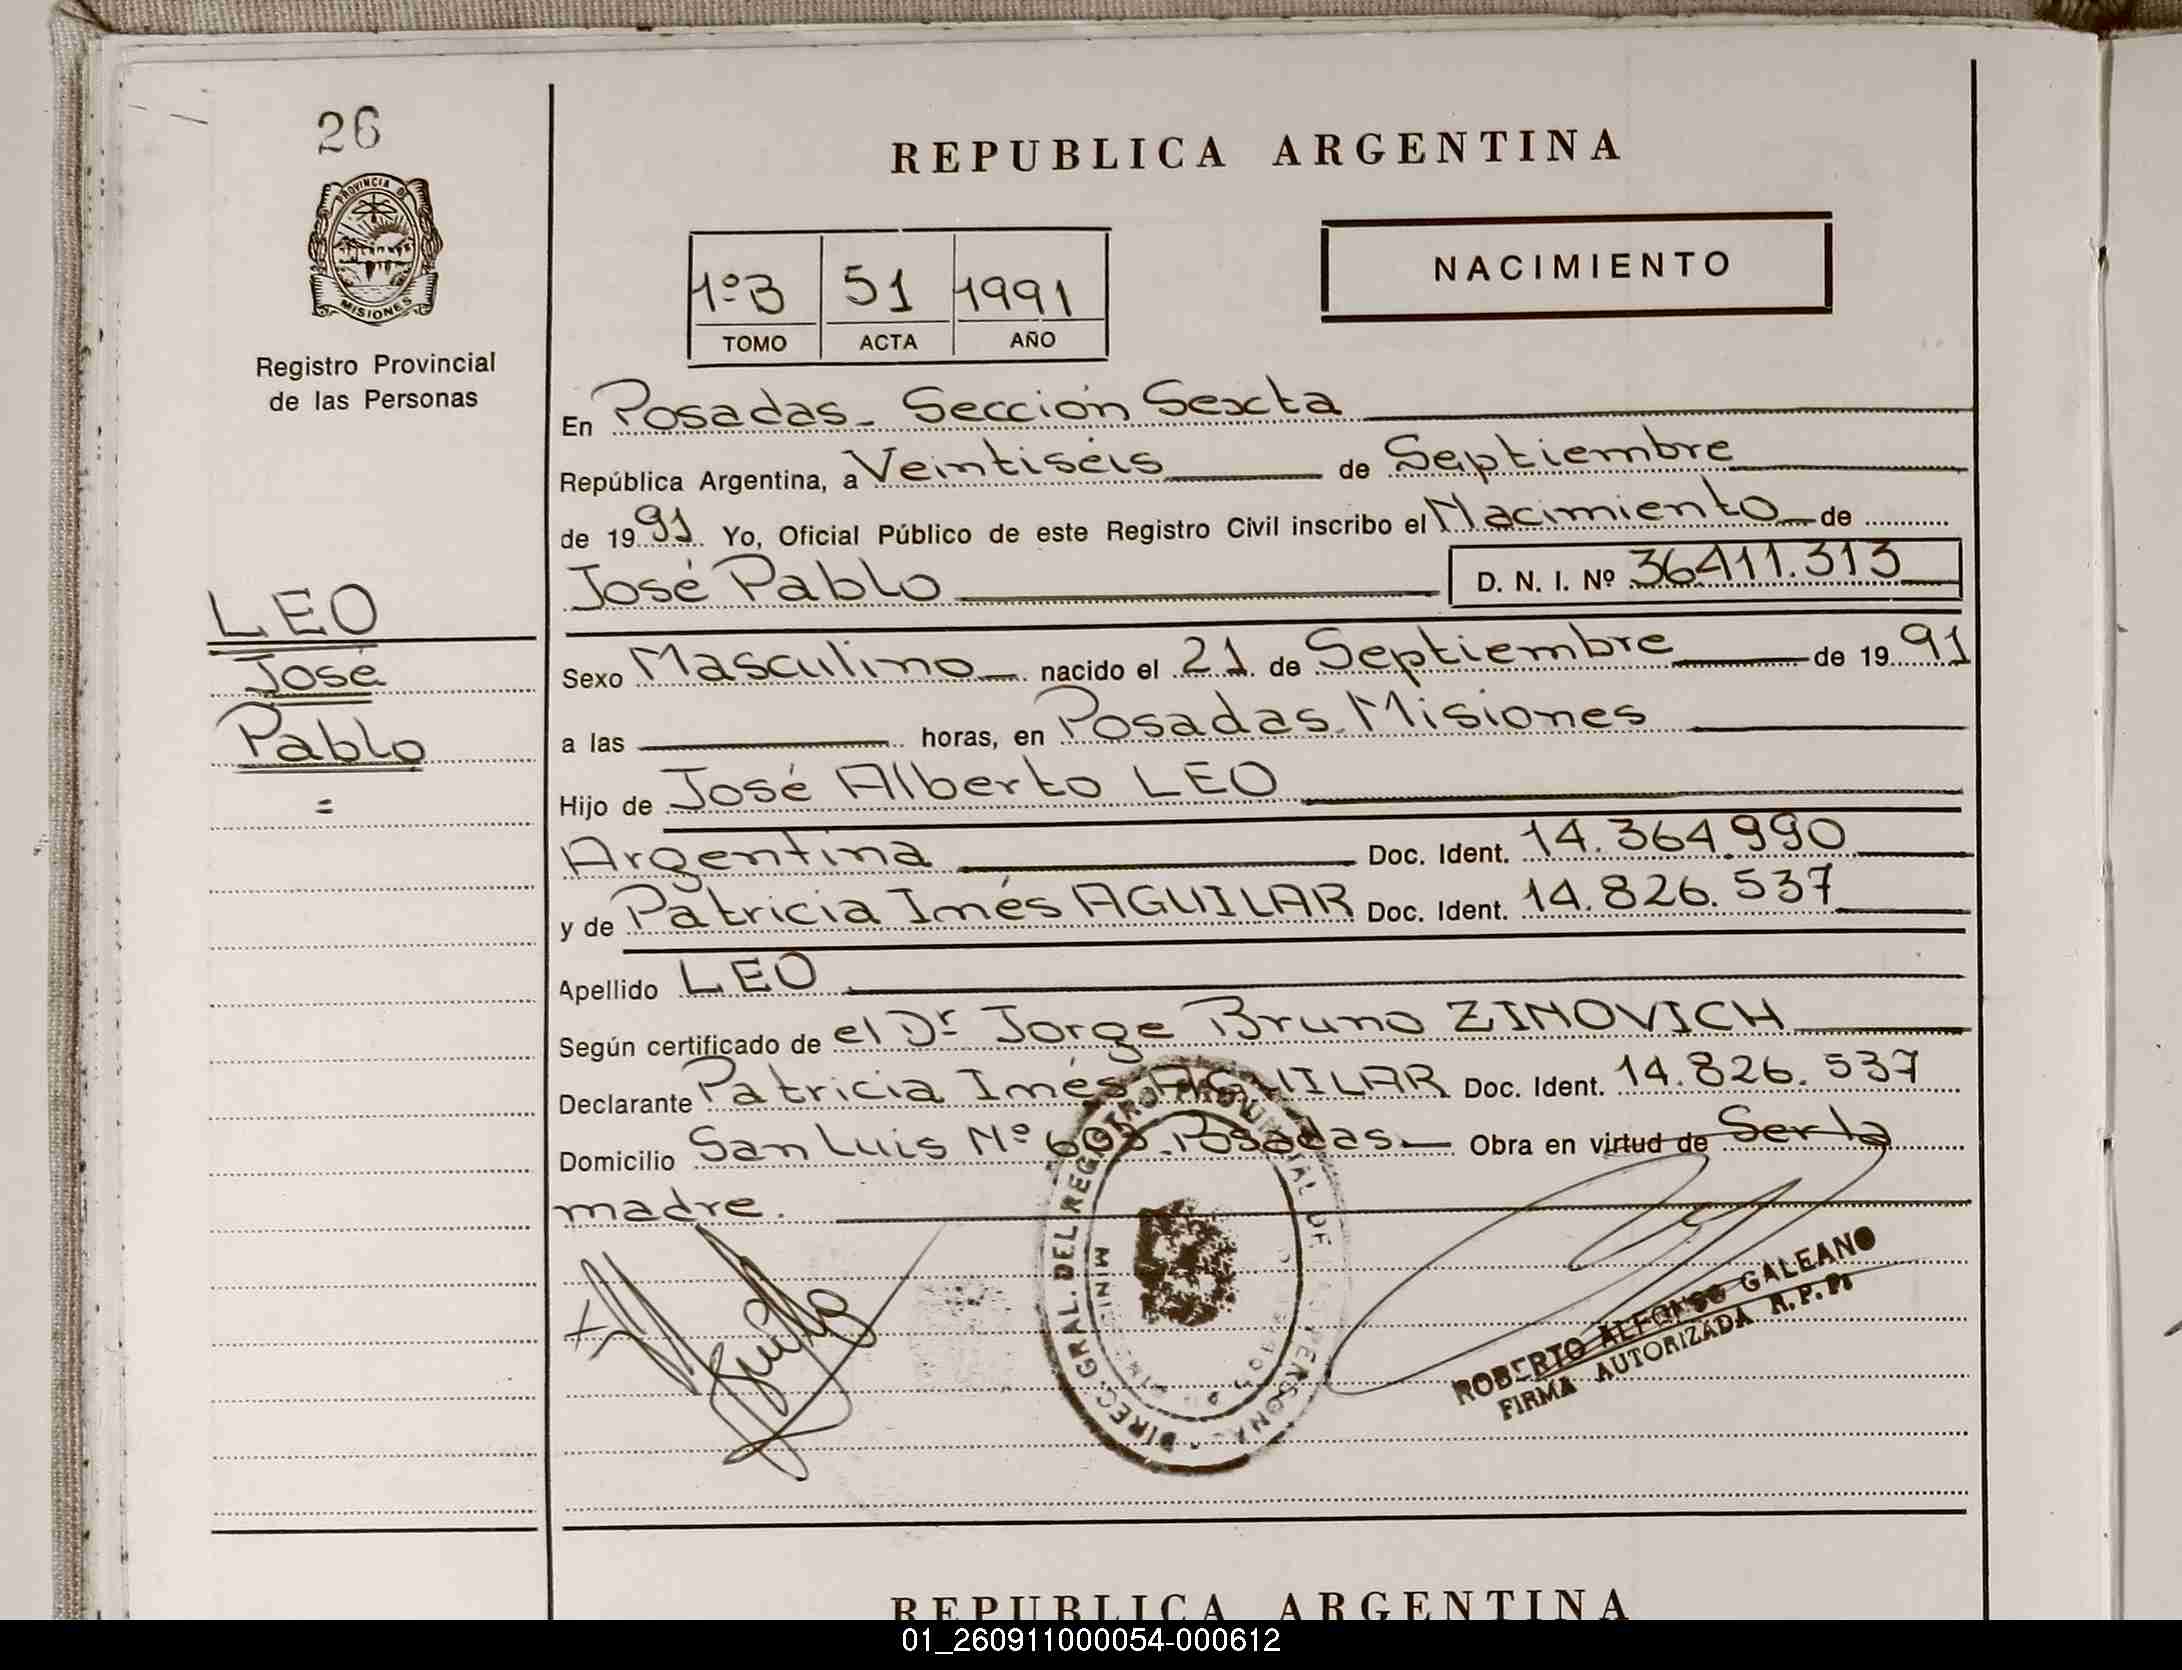 26
PROVINCIA DE
MISIONES
Registro Provincial
de las Personas
LEO
José
Pablo
=
REPUBLICA ARGENTINA
1ºB 51 1991
TOMO ACTA AÑO
NACIMIENTO
En Posadas - Sección Sexta
República Argentina, a Veintiséis de Septiembre
de 1991 Yo, Oficial Público de este Registro Civil inscribo el Nacimiento de
José Pablo D. N. I. Nº 36411.313
Sexo Masculino nacido el 21 de Septiembre de 1991
a las horas, en Posadas. Misiones
Hijo de José Alberto LEO
Argentina Doc. Ident. 14.364.990
y de Patricia Inés AGUILAR Doc. Ident. 14.826.537
Apellido LEO
Según certificado de el Dr. Jorge Bruno ZINOVICH
Declarante Patricia Inés AGUILAR Doc. Ident. 14.826.537
Domicilio San Luis Nº Posadas Obra en virtud de Ser la
madre.
DIREC. GRAL. DEL REGISTRO PROVINCIAL DE LAS PERSONAS
ROBERTO ALFONSO GALEANO
FIRMA AUTORIZADA R. P. P.
REPUBLICA ARGENTINA
01_260911000054-000612